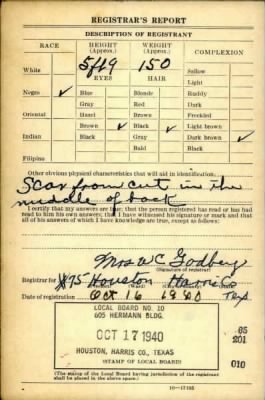 REGISTRAR'S REPORT
DESCRIPTION OF REGISTRANT
RACE HEIGHT (Approx.) WEIGHT (Approx.) COMPLEXION
White 5ft9 150 Sallow
EYES HAIR Light
Negro ✓ Blue Blonde Ruddy
Gray Red Dark
Oriental Hazel Brown Freckled
Brown ✓ Black ✓ Light brown
Indian Black Gray Dark brown ✓
Bald Black
Filipino
Other obvious physical characteristics that will aid in identification
Scar from cut in the
middle of back
I certify that my answers are true; that the person registered has read or has had
read to him his own answers; that I have witnessed his signature or mark and that
all of his answers of which I have knowledge are true, except as follows:
Mrs W C Godbery
(Signature of registrar)
Registrar for 75 Houston Harris
Date of registration Oct 16 1940 Tex
LOCAL BOARD NO. 10
605 HERMANN BLDG.
OCT 17 1940
HOUSTON, HARRIS CO., TEXAS
(STAMP OF LOCAL BOARD)
05
201
010
(The stamp of the Local Board having jurisdiction of the registrant
shall be placed in the above space.)